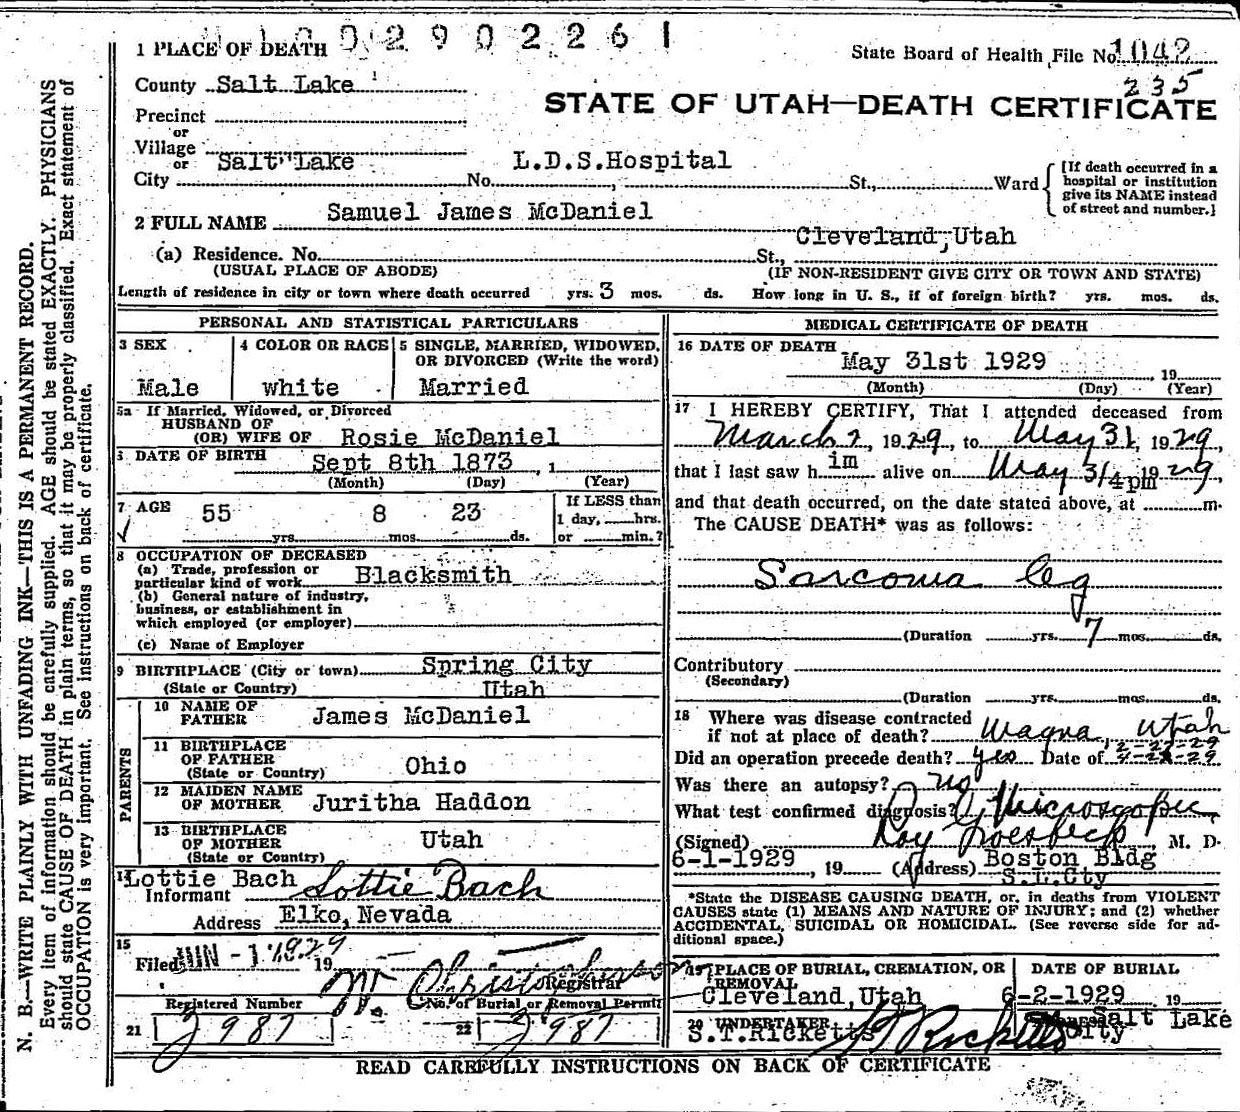 N. B.—WRITE PLAINLY WITH UNFADING INK—THIS IS A PERMANENT RECORD.
Every item of information should be carefully supplied. AGE should be stated EXACTLY. PHYSICIANS
should state CAUSE OF DEATH in plain terms, so that it may be properly classified. Exact statement of
OCCUPATION is very important. See instructions on back of certificate.
0 2 9 0 2 2 6 1
1 PLACE OF DEATH
State Board of Health File No. 1042
235
County Salt Lake
STATE OF UTAH—DEATH CERTIFICATE
Precinct
or
Village
or Salt Lake L.D.S.Hospital
City No. , St., Ward
[If death occurred in a
hospital or institution
give its NAME instead
of street and number.]
2 FULL NAME Samuel James McDaniel
(a) Residence. No. St., Cleveland, Utah
(USUAL PLACE OF ABODE) (IF NON-RESIDENT GIVE CITY OR TOWN AND STATE)
Length of residence in city or town where death occurred yrs. 3 mos. ds. How long in U. S., if of foreign birth? yrs. mos. ds.
PERSONAL AND STATISTICAL PARTICULARS
3 SEX 4 COLOR OR RACE 5 SINGLE, MARRIED, WIDOWED,
OR DIVORCED (Write the word)
Male white Married
5a If Married, Widowed, or Divorced
HUSBAND OF
(OR) WIFE OF Rosie McDaniel
DATE OF BIRTH Sept 8th 1873 , 1
(Month) (Day) (Year)
7 AGE 55 yrs. 8 mos. 23 ds.
If LESS than
1 day, hrs.
or min.?
8 OCCUPATION OF DECEASED
(a) Trade, profession or
particular kind of work Blacksmith
(b) General nature of industry,
business, or establishment in
which employed (or employer)
(c) Name of Employer
9 BIRTHPLACE (City or town) Spring City
(State or Country) Utah
PARENTS
10 NAME OF
FATHER James McDaniel
11 BIRTHPLACE
OF FATHER
(State or Country) Ohio
12 MAIDEN NAME
OF MOTHER Juritha Haddon
13 BIRTHPLACE
OF MOTHER Utah
(State or Country)
14 Lottie Bach
Informant Lottie Bach
Address Elko, Nevada
15
Filed JUN -1 1929 19
Registrar
Registered Number No. of Burial or Removal Permit
21 987 22 987
MEDICAL CERTIFICATE OF DEATH
16 DATE OF DEATH
May 31st 1929 19
(Month) (Day) (Year)
17 I HEREBY CERTIFY, That I attended deceased from
March 2, 1929, to May 31, 1929
that I last saw him alive on May 31 1929,
and that death occurred, on the date stated above, at 4pm m.
The CAUSE DEATH* was as follows:
Sarcoma leg
(Duration yrs. 7 mos. ds.
Contributory
(Secondary)
(Duration yrs. mos. ds.
18 Where was disease contracted
if not at place of death? Magna, Utah
Did an operation precede death? yes Date of
Was there an autopsy? no
What test confirmed diagnosis? Microscopic
(Signed) Roy Groesbeck M. D.
6-1-1929 , 19 (Address) Boston Bldg
S.L.Cty
*State the DISEASE CAUSING DEATH, or, in deaths from VIOLENT
CAUSES state (1) MEANS AND NATURE OF INJURY; and (2) whether
ACCIDENTAL, SUICIDAL OR HOMICIDAL. (See reverse side for ad-
ditional space.)
19 PLACE OF BURIAL, CREMATION, OR
REMOVAL
Cleveland, Utah
DATE OF BURIAL
6-2-1929 19
20 UNDERTAKER
S.T.Ricketts
Salt Lake
City
READ CAREFULLY INSTRUCTIONS ON BACK OF CERTIFICATE